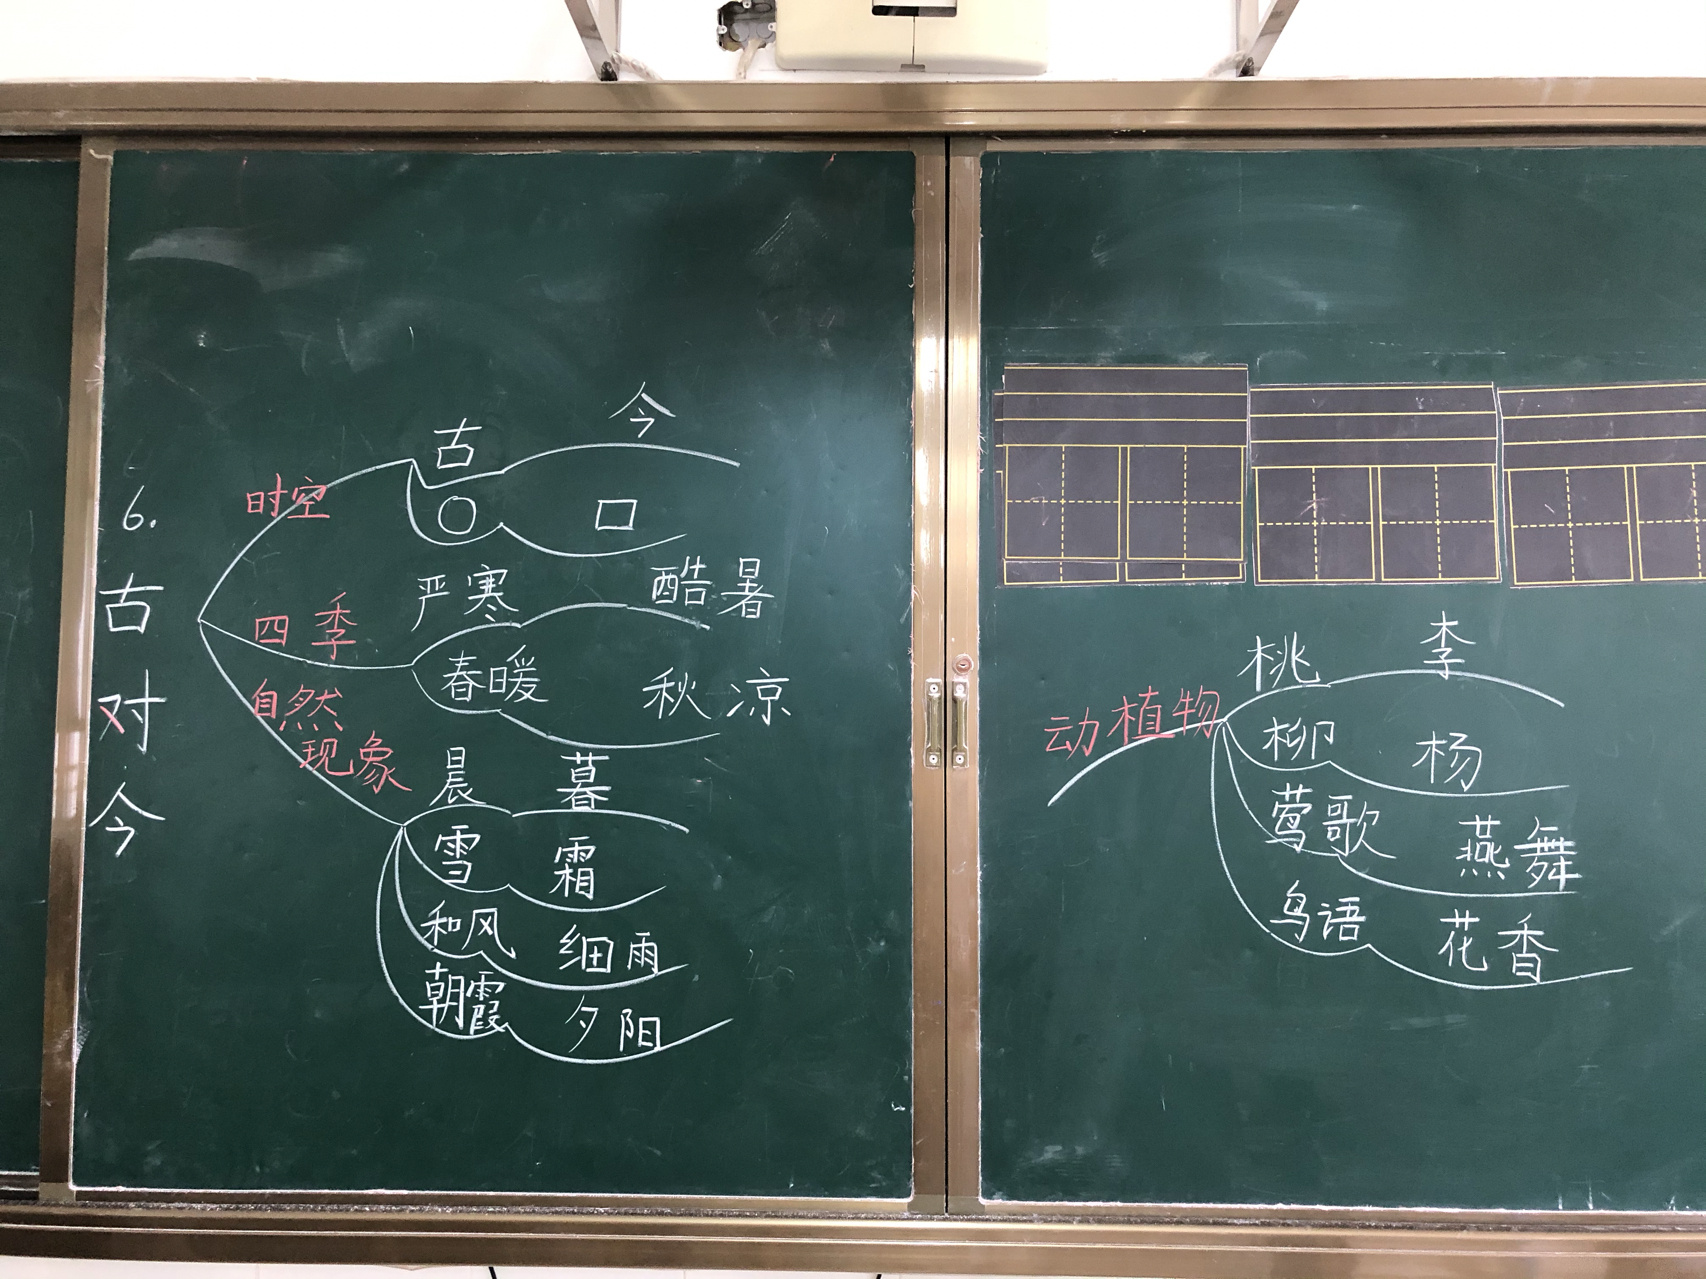 6.古对今
时空
古 今
○ □
四季
严寒 酷暑
春暖 秋凉
自然
现象
晨 暮
雪 霜
和风 细雨
朝霞 夕阳
动植物
桃 李
柳 杨
莺歌 燕舞
鸟语 花香